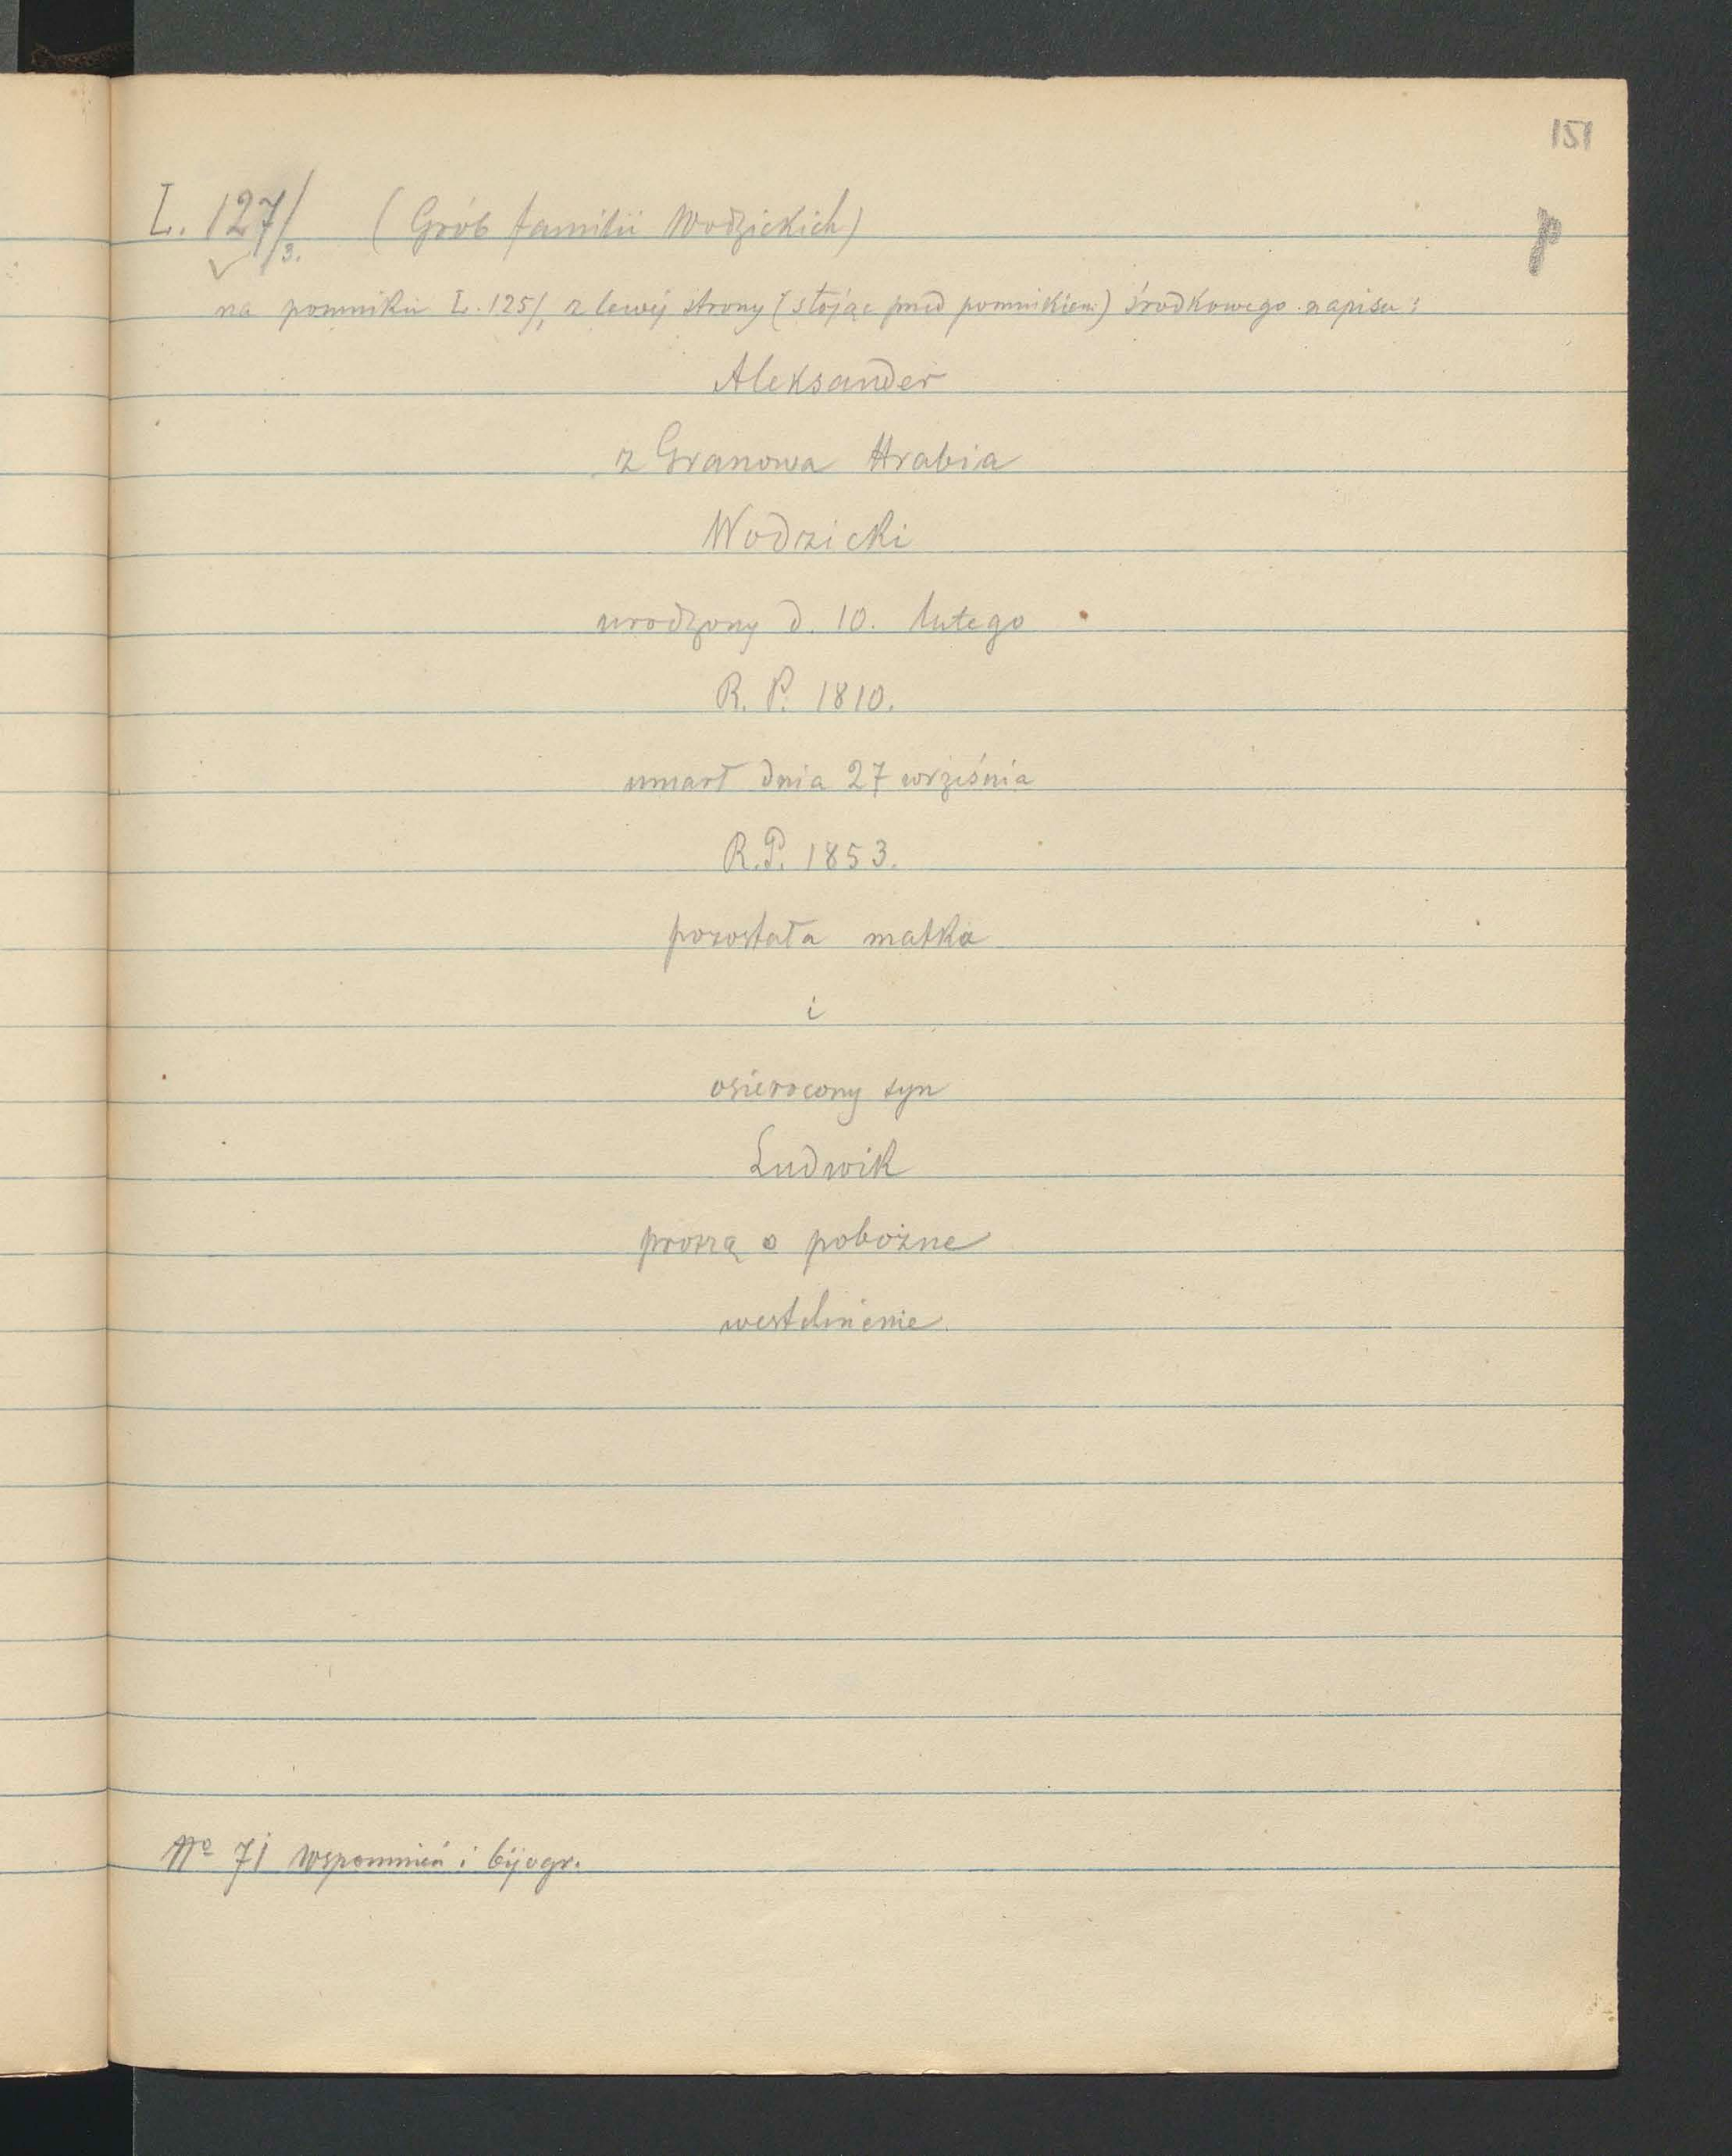 151
L. 127/3. (Grób familii Wodzickich)
p
na pomniku L. 125/1 z lewej strony (stojąc przed pomnikiem) środkowego napisu:
Aleksander
z Granowa Hrabia
Wodzicki
urodzony d. 10. lutego
R. P. 1810.
umarł dnia 27 września
R.P. 1853.
pozostała matka
i
osierocony syn
Ludwik
proszą o pobożne
westchnienie.
No 71 Wspomnień i bijogr.